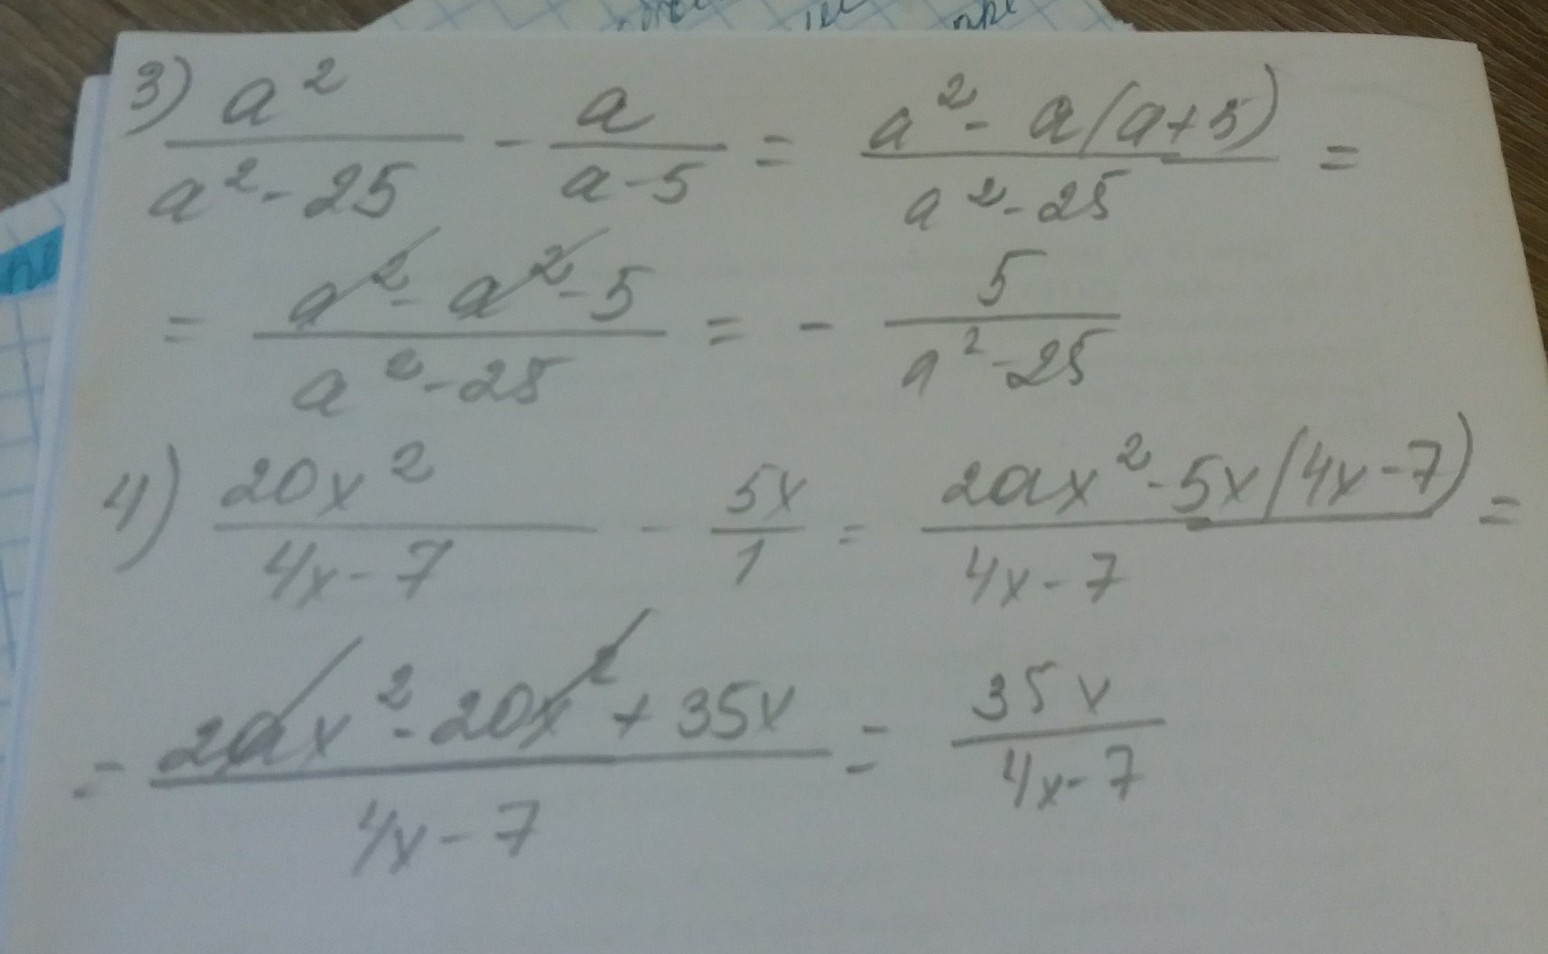 3) a²/(a²-25) - a/(a-5) = (a²- a(a+5))/(a²-25) =
= (a²- a²-5)/(a²-25) = - 5/(a²-25)
4) 20x²/(4x-7) - 5x/1 = (20x²-5x(4x-7))/(4x-7) =
= (20x²-20x²+35x)/(4x-7) = 35x/(4x-7)